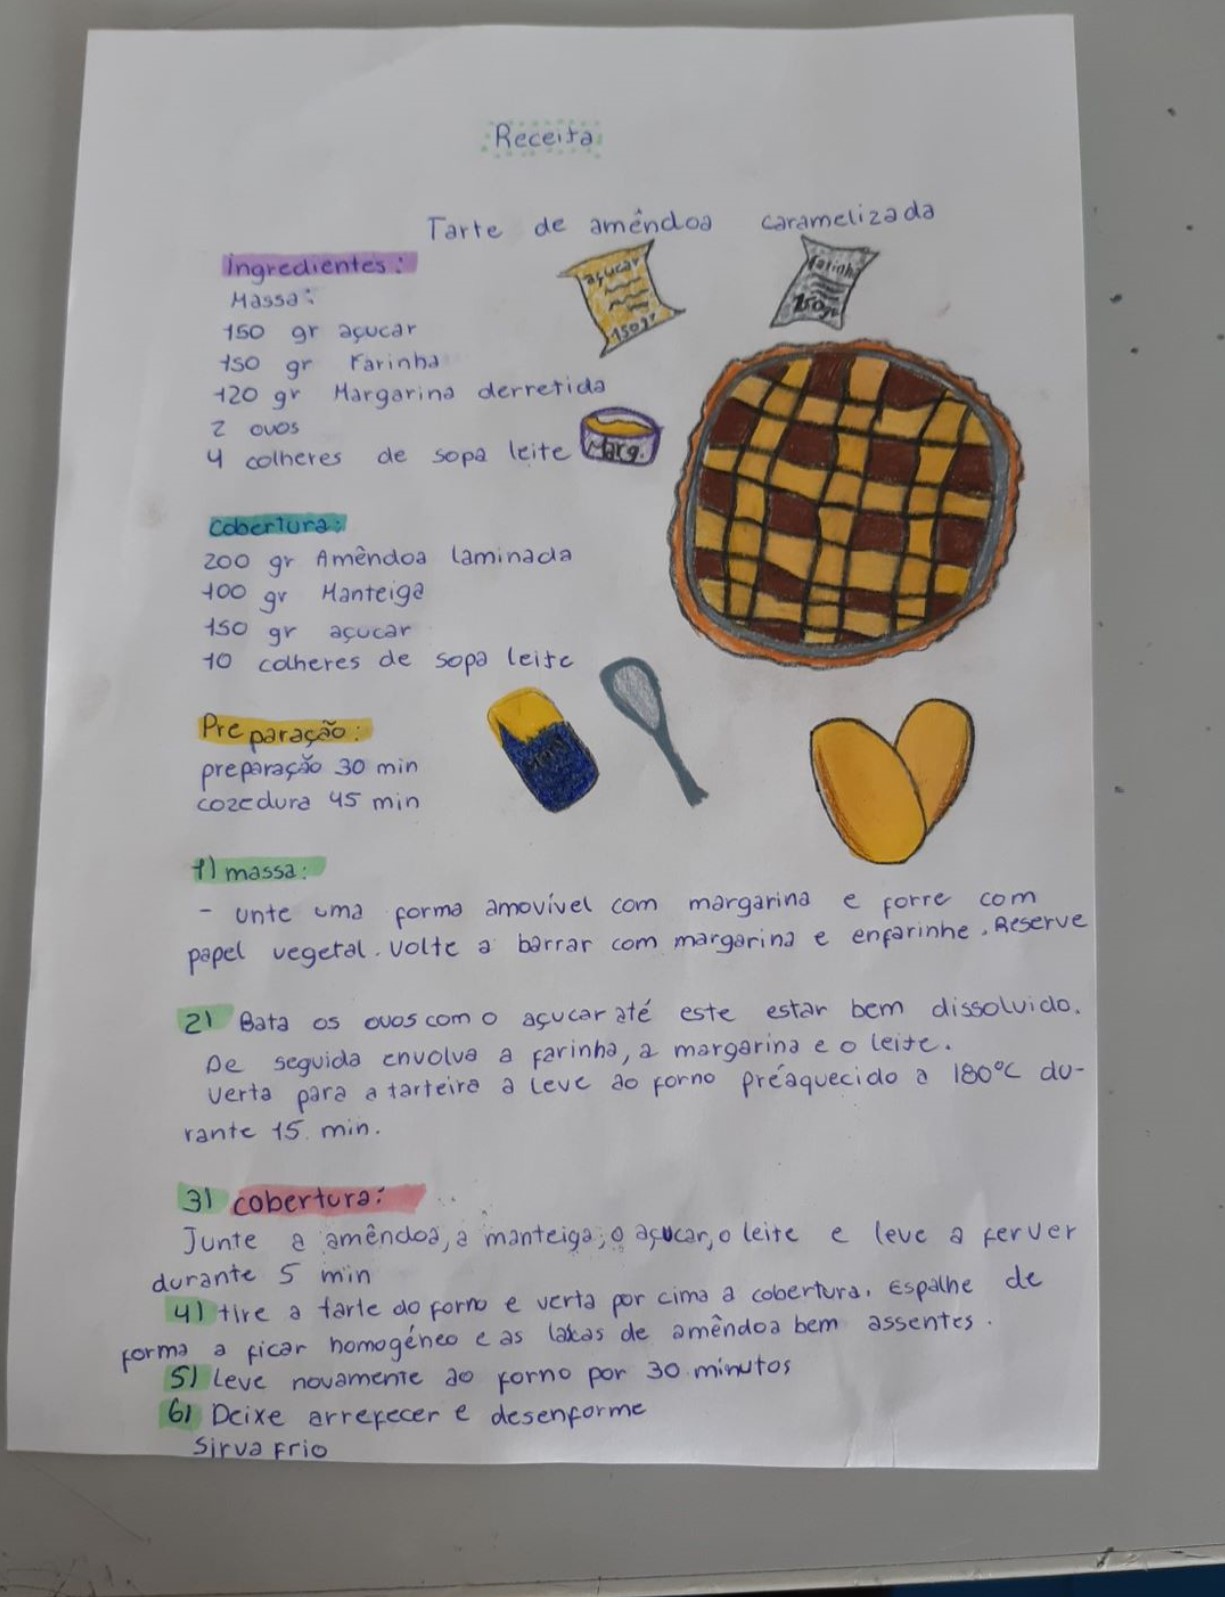 Receita
Tarte de amêndoa caramelizada
Ingredientes:
Massa:
150 gr açucar
150 gr Farinha
120 gr Margarina derretida
2 ovos
4 colheres de sopa leite
açucar
150gr
Farinh
150gr
Marg.
Cobertura:
200 gr Amêndoa laminada
100 gr Manteiga
150 gr açucar
10 colheres de sopa leite
Preparação:
preparação 30 min
cozedura 45 min
1) massa:
- unte uma forma amovível com margarina e forre com
papel vegetal. Volte a barrar com margarina e enfarinhe. Reserve
2) Bata os ovos com o açucar até este estar bem dissolvido.
De seguida envolva a farinha, a margarina e o leite.
Verta para a tarteira a leve ao forno préaquecido a 180ºC du-
rante 15. min.
3) cobertura:
Junte a amêndoa, a manteiga, o açucar, o leite e leve a ferver
durante 5 min
4) tire a tarte do forno e verta por cima a cobertura. Espalhe de
forma a ficar homogéneo e as lakas de amêndoa bem assentes.
5) Leve novamente ao forno por 30 minutos
6) Deixe arrefecer e desenforme
Sirva Frio